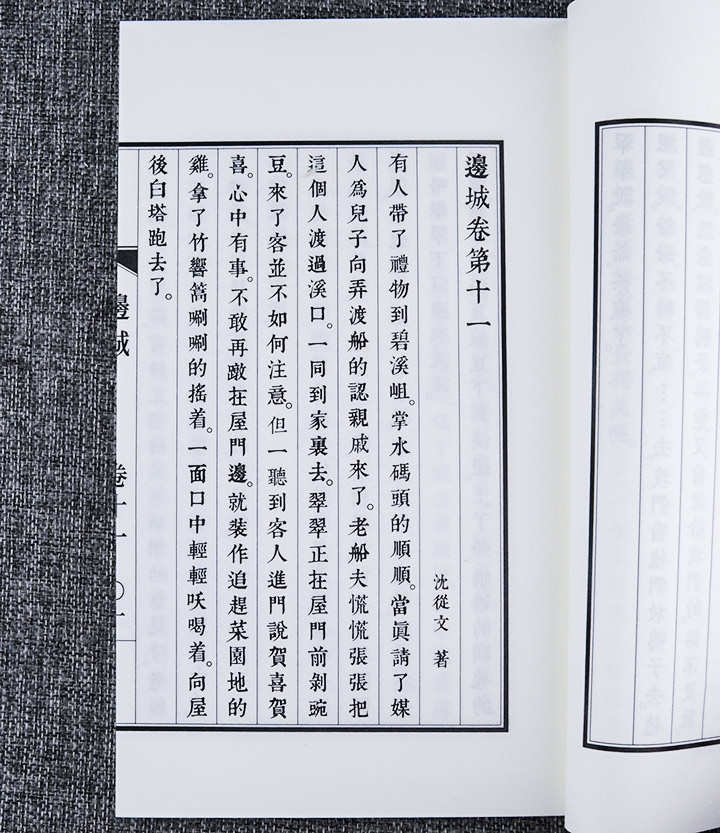 邊城卷第十一
沈從文 著
有人帶了禮物到碧溪岨。掌水碼頭的順順。當眞請了媒
人爲兒子向弄渡船的認親戚來了。老船夫慌慌張張把
這個人渡過溪口。一同到家裏去。翠翠正在屋門前剝豌
豆。來了客並不如何注意。但一聽到客人進門說賀喜賀
喜。心中有事。不敢再蹾在屋門邊。就裝作追趕菜園地的
雞。拿了竹響篙唰唰的搖着。一面口中輕輕吆喝着。向屋
後白塔跑去了。
邊城 卷十一 〇一